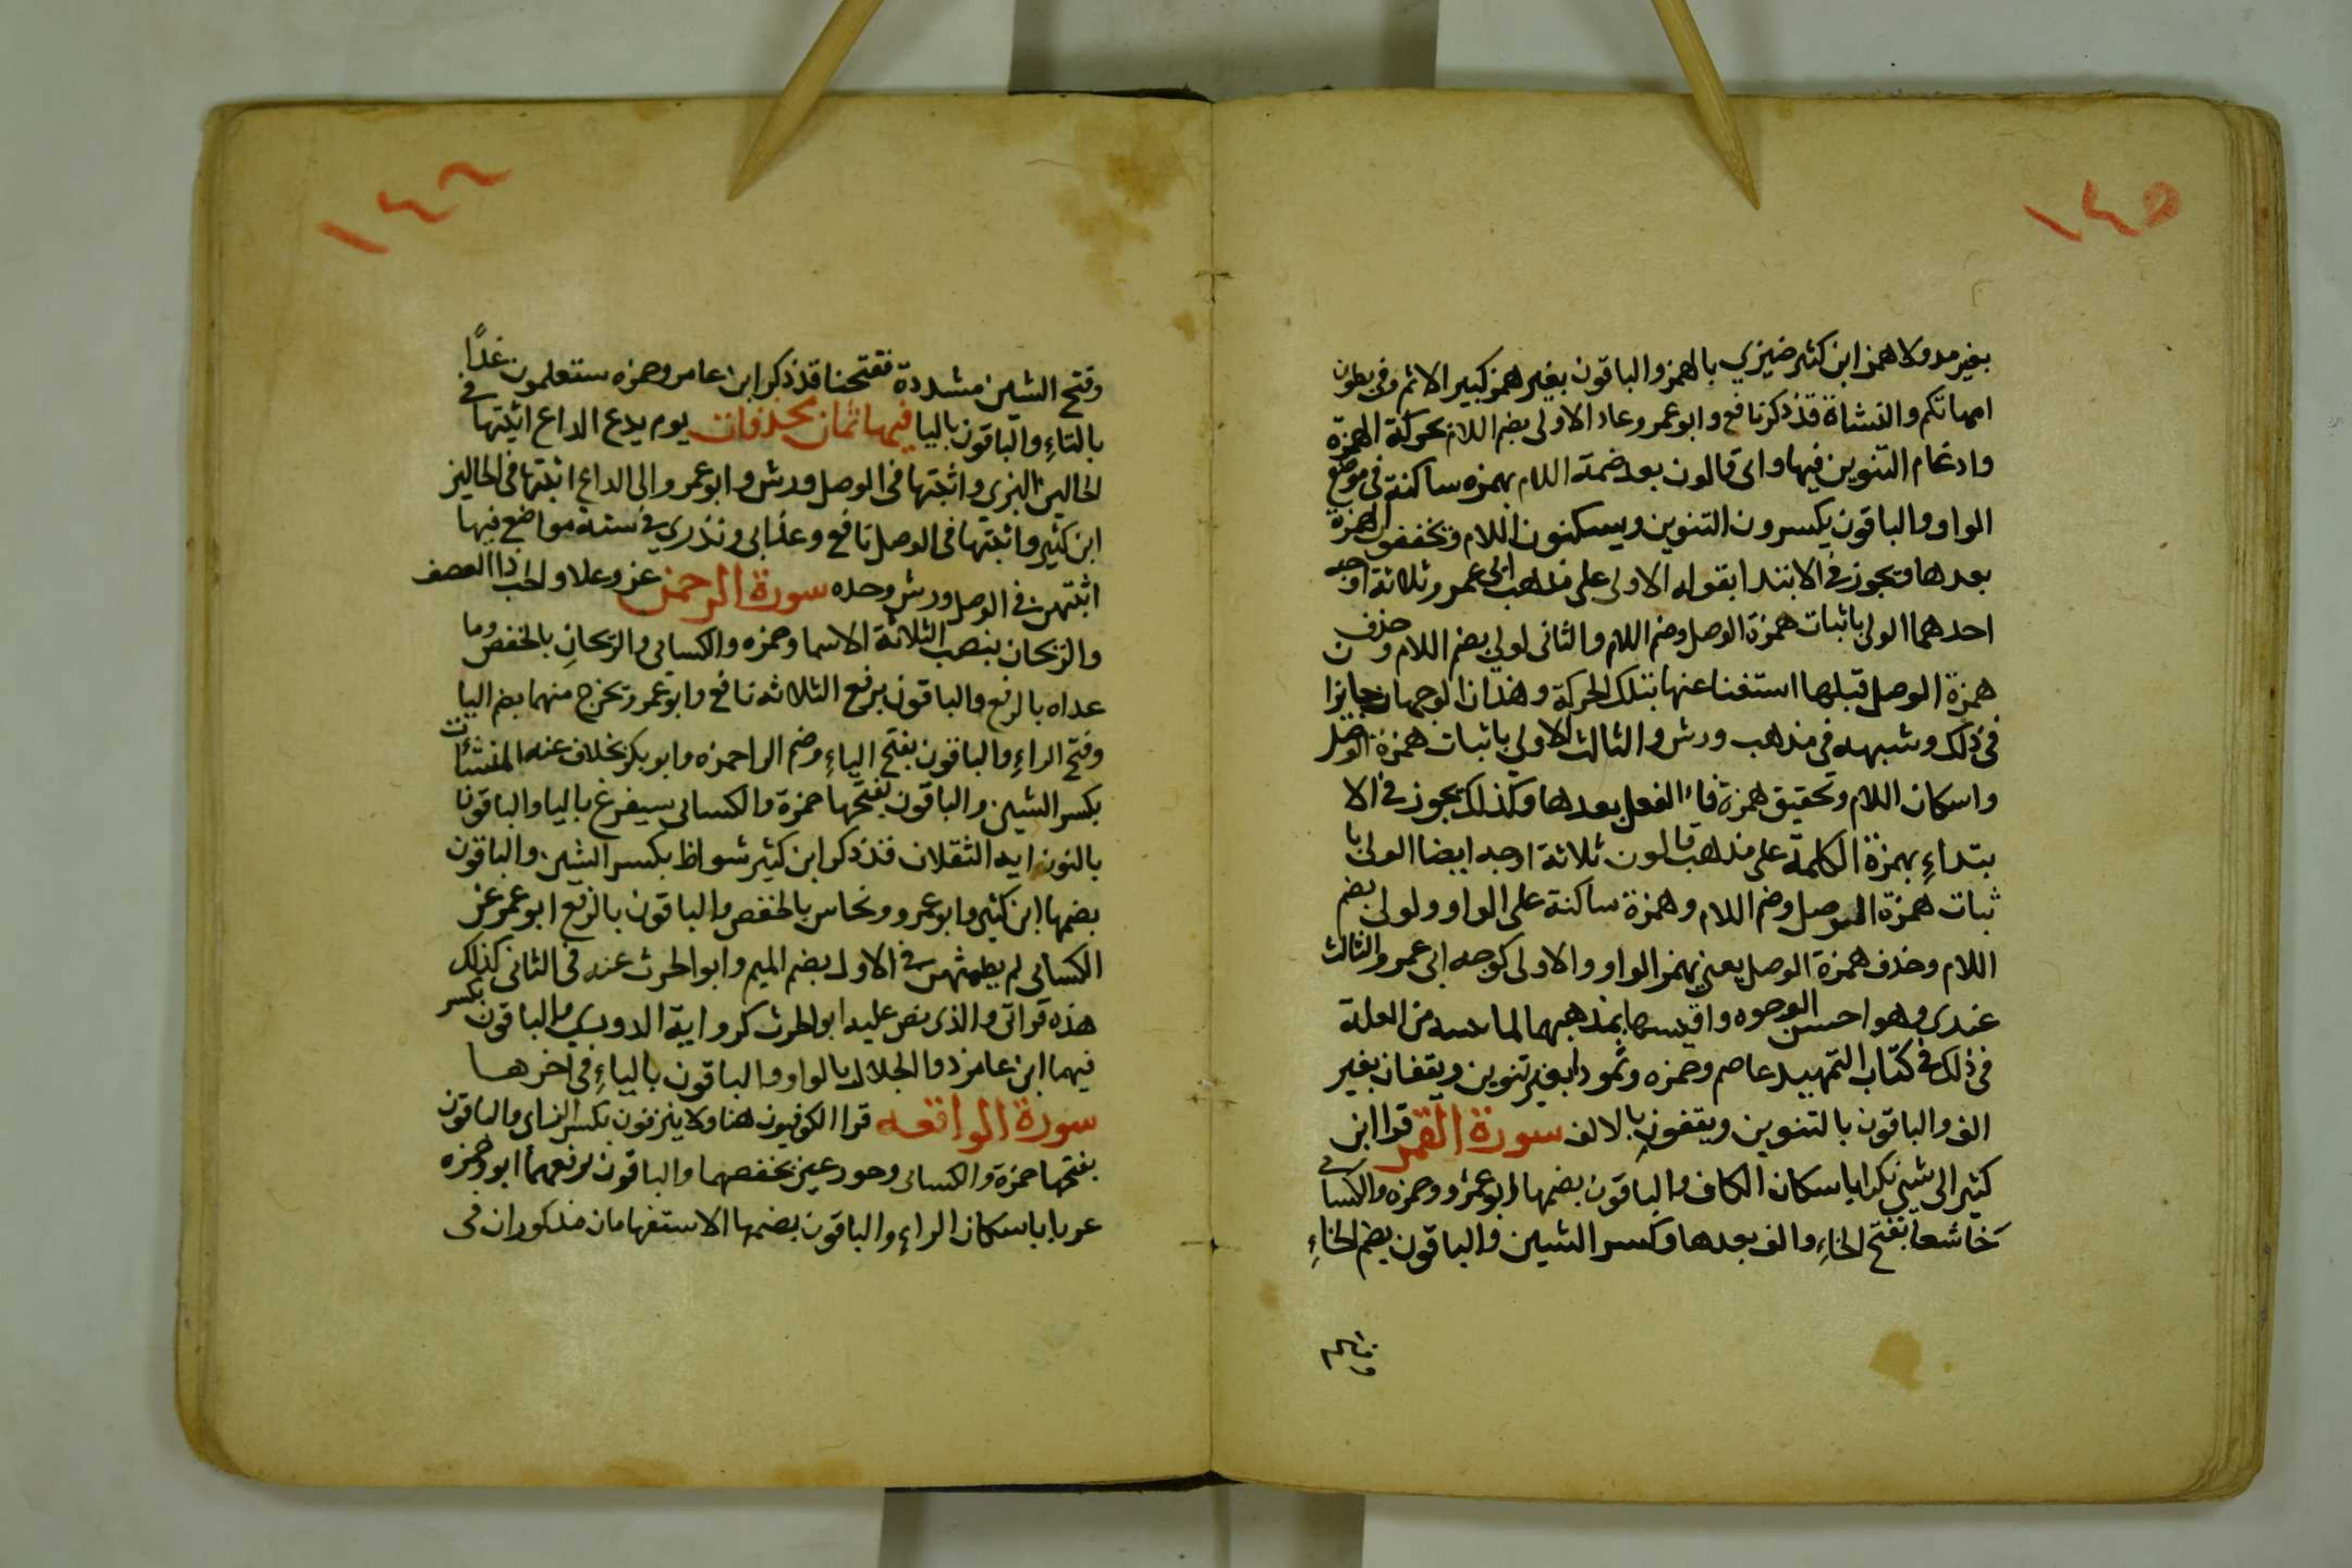 ١٤٥
بغير مد ولا همز ابن كثير ضيزي بالهمز والباقون بغير همز كبير الاثم وفي بطون
امهاتكم والنشاة قد ذكر نافع وابو عمرو عاد الاولى بضم اللام بحركة الهمزة
وادغام التنوين فيها واتى قالون بعد ضمة اللام بهمزه ساكنة في موضع
الواو والباقون يكسرون التنوين ويسكنون اللام وتخففون الهمزة
بعدها وتجوز في الابتدا بقوله الاولى على مذهب ابي عمرو ثلاثة اوجه
احدهما الولى باثبات همزة الوصل وضم اللام والثانى لولى بضم اللام وحذف
همزة الوصل قبلها استغنا عنها بتلك الحركة وهذان الوجهان جايزان
في ذلك وشبهه في مذهب ورش والثالث الاولى باثبات همزة الوصل
واسكان اللام وتحقيق همزة فاء الفعل بعدها وكذلك يجوز في الا
بتداءِ بهمزة الكلمة على مذهب قالون ثلاثة اوجه ايضا الولى با
ثبات همزة الوصل وضم اللام وهمزة ساكنة على الواو ولولى بضم
اللام وحذف همزة الوصل يعني بهمز الواو والاولى كوجه ابى عمرو الثالث
عندى وهو احسن الوجوه واقيسها بمذهبهما لما من العلة
في ذلك في كتاب التمهيد عاصم وحمزه وثمودا بغير تنوين ويقفان بغير
الف والباقون بالتنوين ويقفون بالالف سورة القمر قرا ابن
كثير الى شئ نكرا باسكان الكاف والباقون بضمها ابو عمرو وحمزه والكسائى
خَاشعا بفتح الخاءِ والف بعدها وكسر الشين والباقون بضم الخاءِ
وفتح
١٤٦
وفتح الشين مشددة ففتحنا قد ذكر ابن عامر وحمزه ستعلمون غدًا
بالتاءِ والباقون باليا فيها ثمان محذوفات يوم يدع الداع اثبتها في
الحالين البزى واثبتها فى الوصل ورش وابو عمرو والى الداع اثبتها فى الحالين
ابن كثير واثبتها فى الوصل نافع وعذابى ونذري في ستة مواضع فيها
اثبتهن في الوصل ورش وحده سورة الرحمن عز وعلا والحب ذا العصف
والريحان بنصب الثلاثة الاسما وحمزه والكسائى والريحانِ بالخفض وما
عداه بالرفع والباقون برفع الثلاثه نافع وابو عمرو تخرج منهما بضم اليا
وفتح الراءِ والباقون بفتح الياءِ وضم الرا حمزه وابو بكر بخلاف عنه المنشئات
بكسر الشين والباقون بفتحها حمزة والكسائى سيفرغ باليا والباقون
بالنون ايه الثقلان قد ذكر ابن كثير شواظ بكسر الشين والباقون
بضمها ابن كثير وابو عمرو ونحاس بالخفض والباقون بالرفع ابو عمر عن
الكسائى لم يطمثهن في الاول بضم الميم وابو الحرث عنه فى الثانى كذلك
هذه قراتى والذى نص عليه ابو الحرث كرواية الدوري والباقون بكسر
فيهما ابن عامر ذو الجلال بالواو والباقون بالياءِ في اخرها
سورة الواقعه قرا الكوفيون هنا ولا ينزفون بكسر الزاى والباقون
بفتحها حمزة والكسائى وحور عين بخفضهما والباقون برفعهما ابو وحمزه
عربا باسكان الراءِ والباقون بضمها الاستفهامان مذكوران فى